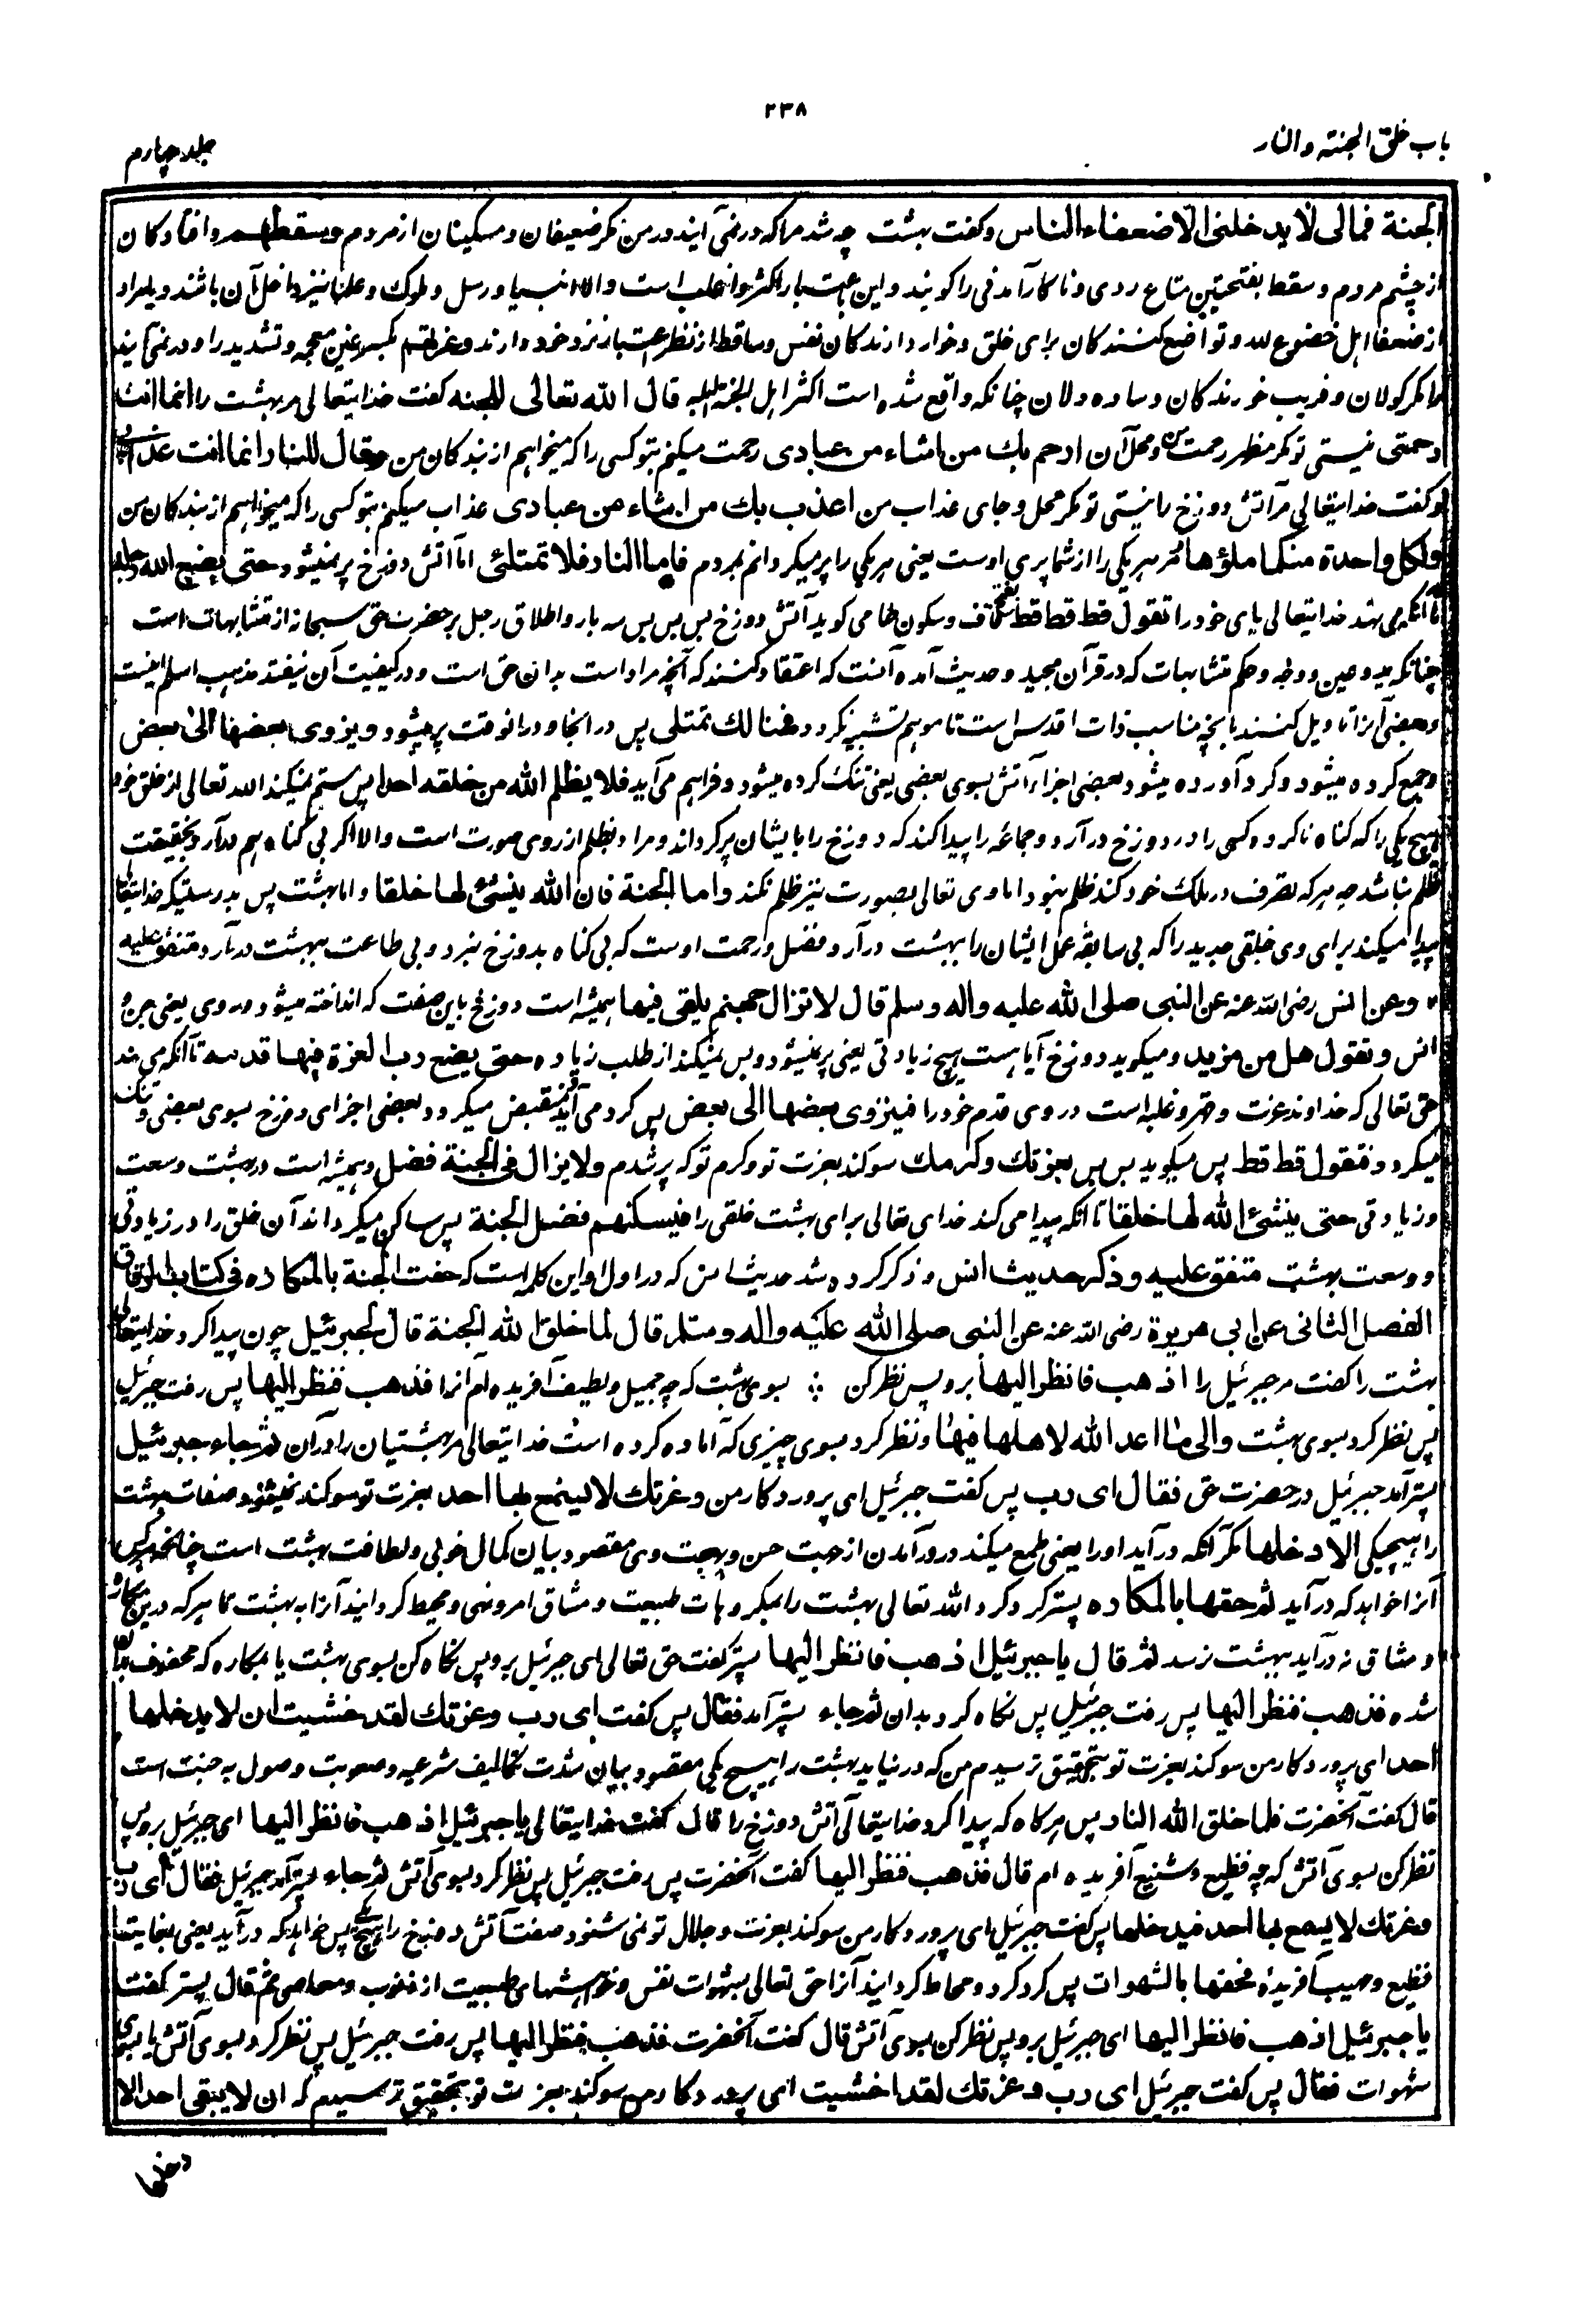 ۲۳۸
باب خلق الجنته والنار
جلد چهارم
الجنة فمالی لا یدخلنی الا ضعفاء الناس وکفت بهشت چه شد مرا که در نمی آیند در من مکر ضعیفان و مسکینان از مردم وسقطهم وافتادکان
از چشم مردم وسقط بفتحتین متاع ردی وناکارآمدنی را کویند واین باعتبار اکثر واغلب است والا انبیا ورسل وملوک وعلما نیز داخل آن باشند ویا مراد
از ضعفا اهل خضوع لله وتواضع کنندکان برای خلق وخوار دارندکان نفس وساقط از نظر اعتبار نزد خود دارند وغرتهم بکسر غین معجمه وتشدید را ودر نمی آیند
مرا مکر کولان وفریب خورندکان وساده دلان چنانکه واقع شده است اکثر اهل الجنة البله قال الله تعالی للجنه کفت خدایتعالی مر بهشت را انما انت
رحمتی نیستی تو مکر مظهر رحمت من ومحل آن ارحم بك من اشاء من عبادی رحمت میکنم بتو کسی را که میخواهم از بندکان من وقال للنار انما انت عذابی
وکفت خدایتعالی مر آتش دوزخ را نیستی تو مکر محل وجای عذاب من اعذب بك من اشاء من عبادی عذاب میکنم بتو کسی را که میخواهم از بندکان من
ولکل واحدة منکما ملؤها مر هر یکی را از شما پری اوست یعنی هر یکی را پر میکردانم بمردم فاما النار فلا تمتلئ اما آتش دوزخ پر نمیشود حتی یضع الله رجله
تا آنکه می نهد خدایتعالی پای خود را تقول قط قط قط بفتح قاف وسکون طا می کوید آتش دوزخ بس بس بس سه بار واطلاق رجل بر حضرت حق سبحانه از متشابهات است
چنانکه ید وعین ووجه وحکم متشابهات که در قرآن مجید وحدیث آمده آنست که اعتقاد کنند که آنچه مراد است بدان حق است ودر کیفیت آن نیفتند مذهب اسلم اینست
وبعضی آنرا تاویل کنند بانچه مناسب ذات اقدس است تا موهم تشبیه نکردد فهنالك تمتلی پس در انجا ودر آنوقت پر میشود ویزوی بعضها الی بعض
وجمع کرده میشود وکرد آورده میشود بعضی اجزاء آتش بسوی بعضی یعنی تنک کرده میشود وفراهم می آید فلا یظلم الله من خلقه احدا پس ستم نمیکند الله تعالی از خلق خود
هیچ یکی را که کناه ناکرده کسی را در دوزخ درآرد وجماعه را پیدا کند که دوزخ را بایشان پر کرداند ومراد بظلم از روی صورت است والا اکر بی کناه هم درآرد بحقیقت
ظلم نباشد چه هر که تصرف در ملک خود کند ظلم نبود اما وی تعالی بصورت نیز ظلم نکند واما الجنة فان الله ینشئ لها خلقا واما بهشت پس بدرستیکه خدایتعالی
پیدا میکند برای وی خلقی جدید را که بی سابقه عمل ایشان را ببهشت درآرد فضل ورحمت اوست که بی کناه بدوزخ نبرد وبی طاعت ببهشت درآرد متفق علیه
وعن انس رضی الله عنه عن النبی صلی الله علیه واله وسلم قال لا تزال جهنم یلقی فیها همیشه است دوزخ باین صفت که انداخته میشود در وی یعنی جن و
انس وتقول هل من مزید ومیکوید دوزخ آیا هست هیچ زیادتی یعنی پر نمیشود وبس نمیکند از طلب زیاده حتی یضع رب العزة فیها قدمه تا آنکه می نهد
حق تعالی که خداوند عزت وقهر وغلبه است در وی قدم خود را فینزوی بعضها الی بعض پس کرد می آید ومنقبض میکردد بعضی اجزای دوزخ بسوی بعضی وتنک
میکردد فتقول قط قط پس میکوید بس بس بعزتك وکرمك سوکند بعزت تو وکرم تو که پر شدم ولا یزال فی الجنة فضل وهمیشه است در بهشت وسعت
وزیادتی حتی ینشئ الله لها خلقا تا آنکه پیدا می کند خدای تعالی برای بهشت خلقی را فیسکنهم فضل الجنة پس ساکن میکرداند آن خلق را در زیادتی
ووسعت بهشت متفق علیه وذکر حدیث انس وذکر کرده شد حدیث انس که در اول او این کلمه است که حفت الجنة بالمکاره فی کتاب الرقاق
الفصل الثانی عن ابی هریرة رضی الله عنه عن النبی صلی الله علیه واله وسلم قال لما خلق الله الجنة قال لجبرئیل چون پیدا کرد خدایتعالی
بهشت را کفت مر جبرئیل را اذهب فانظر الیها برو پس نظر کن ∴ بسوی بهشت که چه جمیل ولطیف آفریده ام آنرا فذهب فنظر الیها پس رفت جبرئیل
پس نظر کرد بسوی بهشت والی ما اعد الله لاهلها فیها ونظر کرد بسوی چیزی که آماده کرده است خدایتعالی مر بهشتیان را در آن ثم جاء جبرئیل
پستر آمد جبرئیل در حضرت حق فقال ای رب پس کفت جبرئیل ای پروردکار من وعزتك لا یسمع بها احد بعزت تو سوکند نمیشنود صفات بهشت
را هیچ یکی الا دخلها مکر آنکه درآید او را یعنی طمع میکند در درآمدن از جهت حسن وبهجت وی مقصود بیان کمال خوبی ولطافت بهشت است چنانکه هر کس
آنرا خواهد که درآید ثم حفها بالمکاره پستر کرد کرد الله تعالی بهشت را بمکروهات طبیعت ومشاق امر ونهی ومحیط کردانید آنرا به بهشت تا هر که درین مکاره
ومشاق نه درآید ببهشت نرسد ثم قال یا جبرئیل اذهب فانظر الیها پستر کفت حق تعالی ای جبرئیل برو پس نکاه کن بسوی بهشت یا بمکاره که محفوف بدان
شده فذهب فنظر الیها پس رفت جبرئیل پس نکاه کرد بدان ثم جاء پستر آمد فقال پس کفت ای رب وعزتك لقد خشیت ان لا یدخلها
احد ای پروردکار من سوکند بعزت تو بتحقیق ترسیدم من که در نیاید بهشت را هیچ یکی مقصود بیان شدت تکالیف شرعیه وصعوبت وصول به جنت است
قال کفت آنحضرت فلما خلق الله النار پس هر کاه که پیدا کرد خدایتعالی آتش دوزخ را قال کفت خدایتعالی یا جبرئیل اذهب فانظر الیها ای جبرئیل برو پس
نظر کن بسوی آتش که چه فظیع وشنیع آفریده ام قال فذهب فنظر الیها کفت آنحضرت پس رفت جبرئیل پس نظر کرد بسوی آتش ثم جاء پستر آمد جبرئیل فقال ای رب
وعزتك لا یسمع بها احد فیدخلها پس کفت جبرئیل ای پروردکار من سوکند بعزت وجلال تو نمی شنود صفت آتش دوزخ را هیچ یکی پس خواهد که درآید یعنی بغایت
فظیع ومهیب آفریده فحفها بالشهوات پس کرد کرد ومحاط کردانید آنرا حق تعالی بشهوات نفس وخواهشهای طبیعت از ذنوب ومعاصی ثم قال پستر کفت
یا جبرئیل اذهب فانظر الیها ای جبرئیل برو پس نظر کن بسوی آتش قال کفت آنحضرت فذهب فنظر الیها پس رفت جبرئیل پس نظر کرد بسوی آتش یا بسوی
شهوات فقال پس کفت جبرئیل ای رب وعزتك لقد خشیت ای پروردکار من سوکند بعزت تو بتحقیق ترسیدم که ان لا یبقی احد الا
دخلها